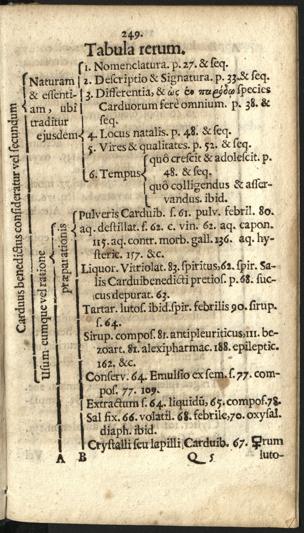 249.
Tabula rerum.
Carduus benedictus consideratur vel secundum
Naturam
& essenti-
am, ubi
traditur
ejusdem
1. Nomenclatura. p. 27. & seq.
2. Descriptio & Signatura. p. 33. & seq.
3. Differentia, & ὡς ἐν παρόδῳ species
Carduorum fere omnium. p. 38. &
seq.
4. Locus natalis. p. 48. & seq.
5. Vires & qualitates. p. 52. & seq.
6. Tempus
quo crescit & adolescit. p.
48. & seq.
quo colligendus & asser-
vandus. ibid.
Usum. eumque vel ratione
præparationis
Pulveris Carduib. f. 61. pulv. febril. 80.
aq. destillat. f. 62. c. vin. 62. aq. capon.
115. aq. contr. morb. gall. 136. aq. hy-
steric. 157. &c.
Liquor. Vitriolat. 83. spiritus, 62. spir. Sa-
lis Carduibenedicti pretios. p. 68. suc-
cus depurat. 63.
Tartar. lutos. ibid. spir. febrilis 90. sirup.
f. 64.
Sirup. compos. 81. antipleuriticus, 111. be-
zoart. 81. alexipharmac. 188. epileptic.
162. &c.
Conserv. 64. Emulsio ex sem. f. 77. com-
pos. 77. 109.
Extractum f. 64. liquidū, 65. compos. 78.
Sal fix. 66. volatil. 68. febrile, 70. oxysal.
diaph. ibid.
Crystalli seu lapilli Carduib. 67. ♀rum
A B Q 5 luto-